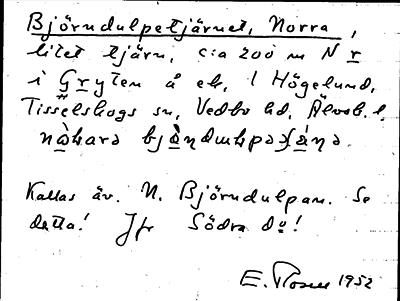 Björndulpetjärnet, Norra,
litet tjärn, c:a 200 m N r
i Gryten å ek, 1 Högelund,
Tisselskogs sn, Vedbo hd, Älvsb. l.
Kallas äv. N. Björndulpan. Se
detta! Jfr Södra do!
E. Rosen 1952